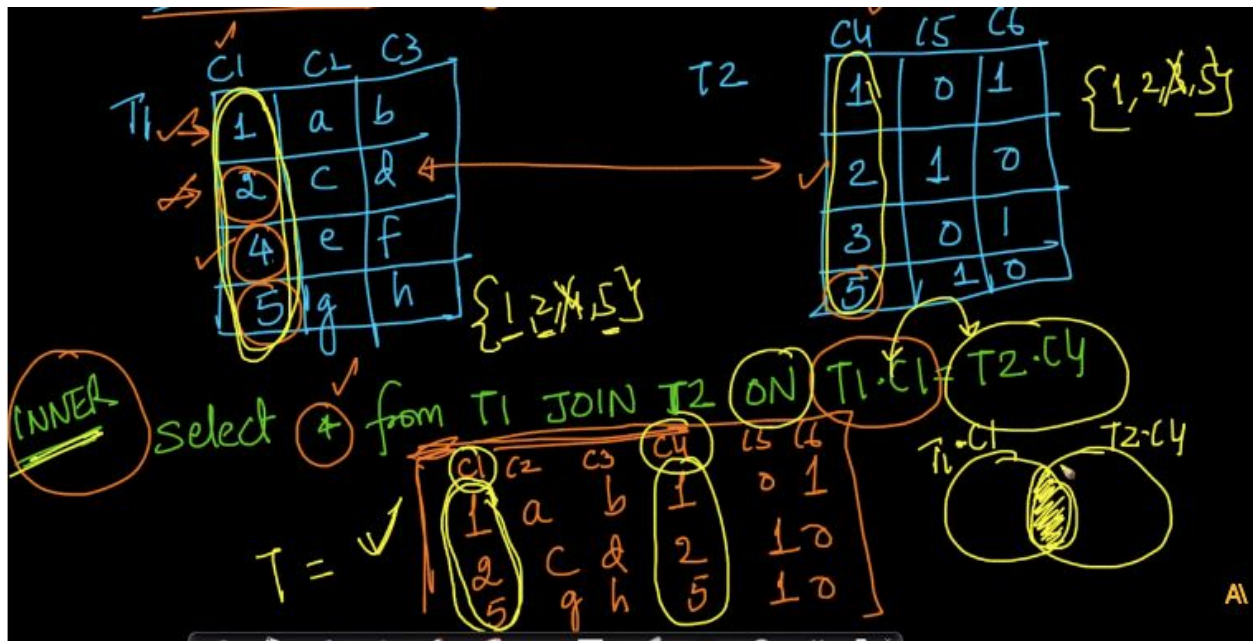 C1 C2 C3
T1
1 a b
2 c d
4 e f
5 g h
{1, 2, 4, 5}
T2
C4 C5 C6
1 0 1
2 1 0
3 0 1
5 1 0
{1, 2, 3, 5}
INNER
select * from T1 JOIN T2 ON T1.C1 = T2.C4
T =
C1 C2 C3 C4 C5 C6
1 a b 1 0 1
2 c d 2 1 0
5 g h 5 1 0
T1.C1 T2.C4
A\